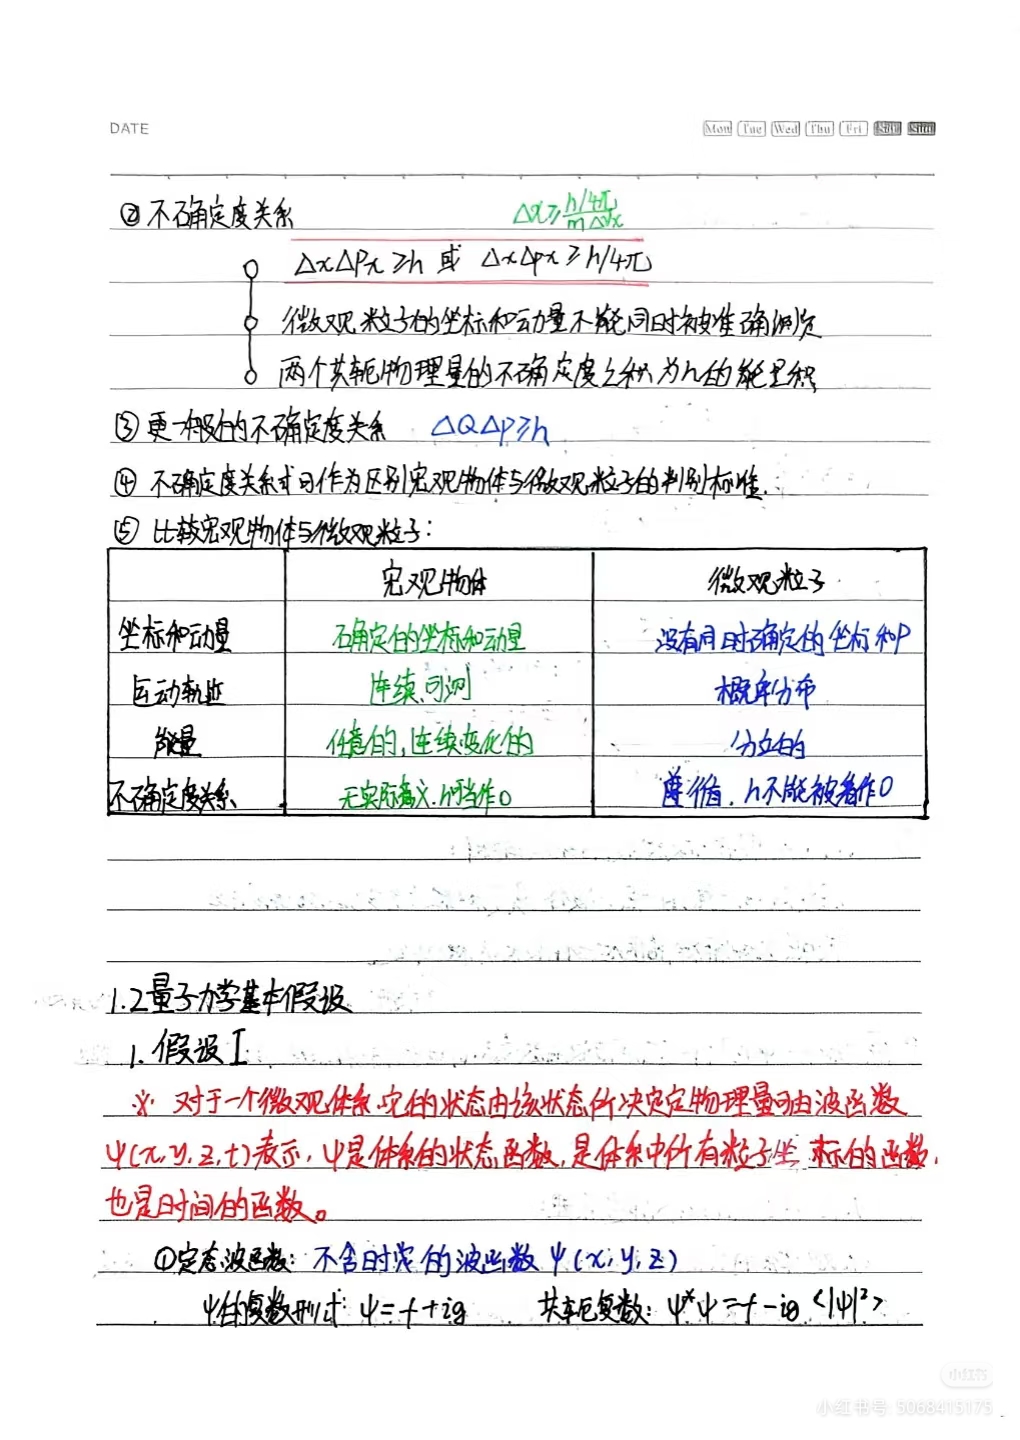 DATE Mon Tue Wed Thu Fri
② 不确定度关系 Δx≥(h/4π)/(mΔvx)
ΔxΔPx≥h 或 ΔxΔpx≥h/4π
微观粒子的坐标和动量不能同时被准确测定
两个共轭物理量的不确定度之积为h的能量级
③ 更一般的不确定度关系 ΔQΔp≥h
④ 不确定度关系式可作为区别宏观物体与微观粒子的判别标准.
⑤ 比较宏观物体与微观粒子:
宏观物体 微观粒子
坐标和动量 确定的坐标和动量 没有同时确定的坐标和P
运动轨迹 连续可测 概率分布
能量 任意的,连续变化的 分立的
不确定度关系 无实际意义.h可当作0 遵循.h不能被看作0
1.2量子力学基本假设
1. 假设I
※ 对于一个微观体系,它的状态由该状态所决定物理量可由波函数
ψ(x,y,z,t)表示,ψ是体系的状态函数,是体系中所有粒子坐标的函数,
也是时间的函数。
①定态波函数: 不含时间的波函数 ψ(x,y,z)
ψ的复数形式: ψ=f+ig 共轭复数: ψ*ψ=f-ig <|ψ|²>
小红书
小红书号: 5068415175